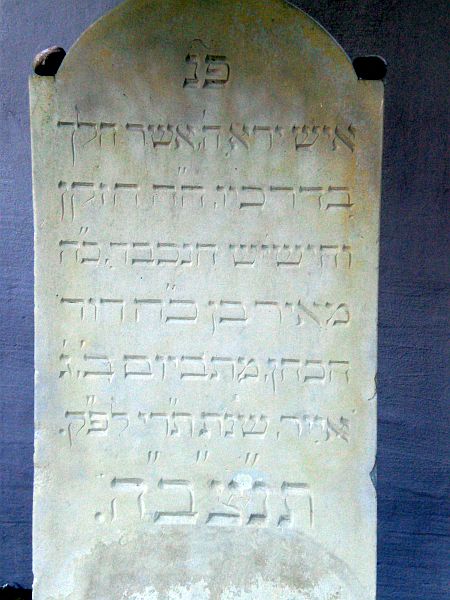 פ״נ
איש ירא ה', אשר הלך
בדרכיו, ה״ה הזקן
והישיש הנכבד, כ״ה
מאיר בן כ״ה דוד
הכהן, מת ביום ב', ג'
אייר, שנת תר״י לפ״ק.
תנ״צ״ב״ה.